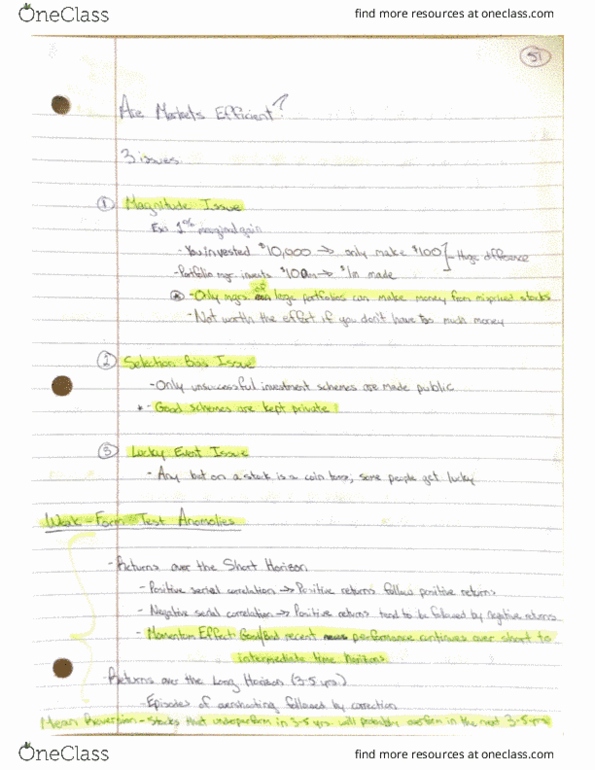 OneClass
find more resources at oneclass.com
51
Are Markets Efficient?
3 issues
① Magnitude Issue
Ex: 1% marginal gain
- You invested $10,000 → only make $100 ] - Huge difference
- Portfolio mgr. invests $100m → $1m made
- Only mgrs. of large portfolios can make money from mispriced stocks
- Not worth the effort if you don't have too much money
② Selection Bias Issue
- Only unsuccessful investment schemes are made public
* - Good schemes are kept private
③ Lucky Event Issue
- Any bet on a stock is a coin toss; some people get lucky
Weak-Form Test Anomolies
- Returns over the Short Horizon
- Positive serial correlation → Positive returns follow positive returns
- Negative serial correlation → Positive returns tend to be followed by negative returns
- Momentum Effect: Good/Bad recent performance continues over short to
intermediate time horizons
- Returns over the Long Horizon (3-5 yrs.)
- Episodes of overshooting followed by correction
Mean Reversion - Stocks that underperform in 3-5 yrs. will probably in the next 3-5 yrs
OneClass
find more resources at oneclass.com